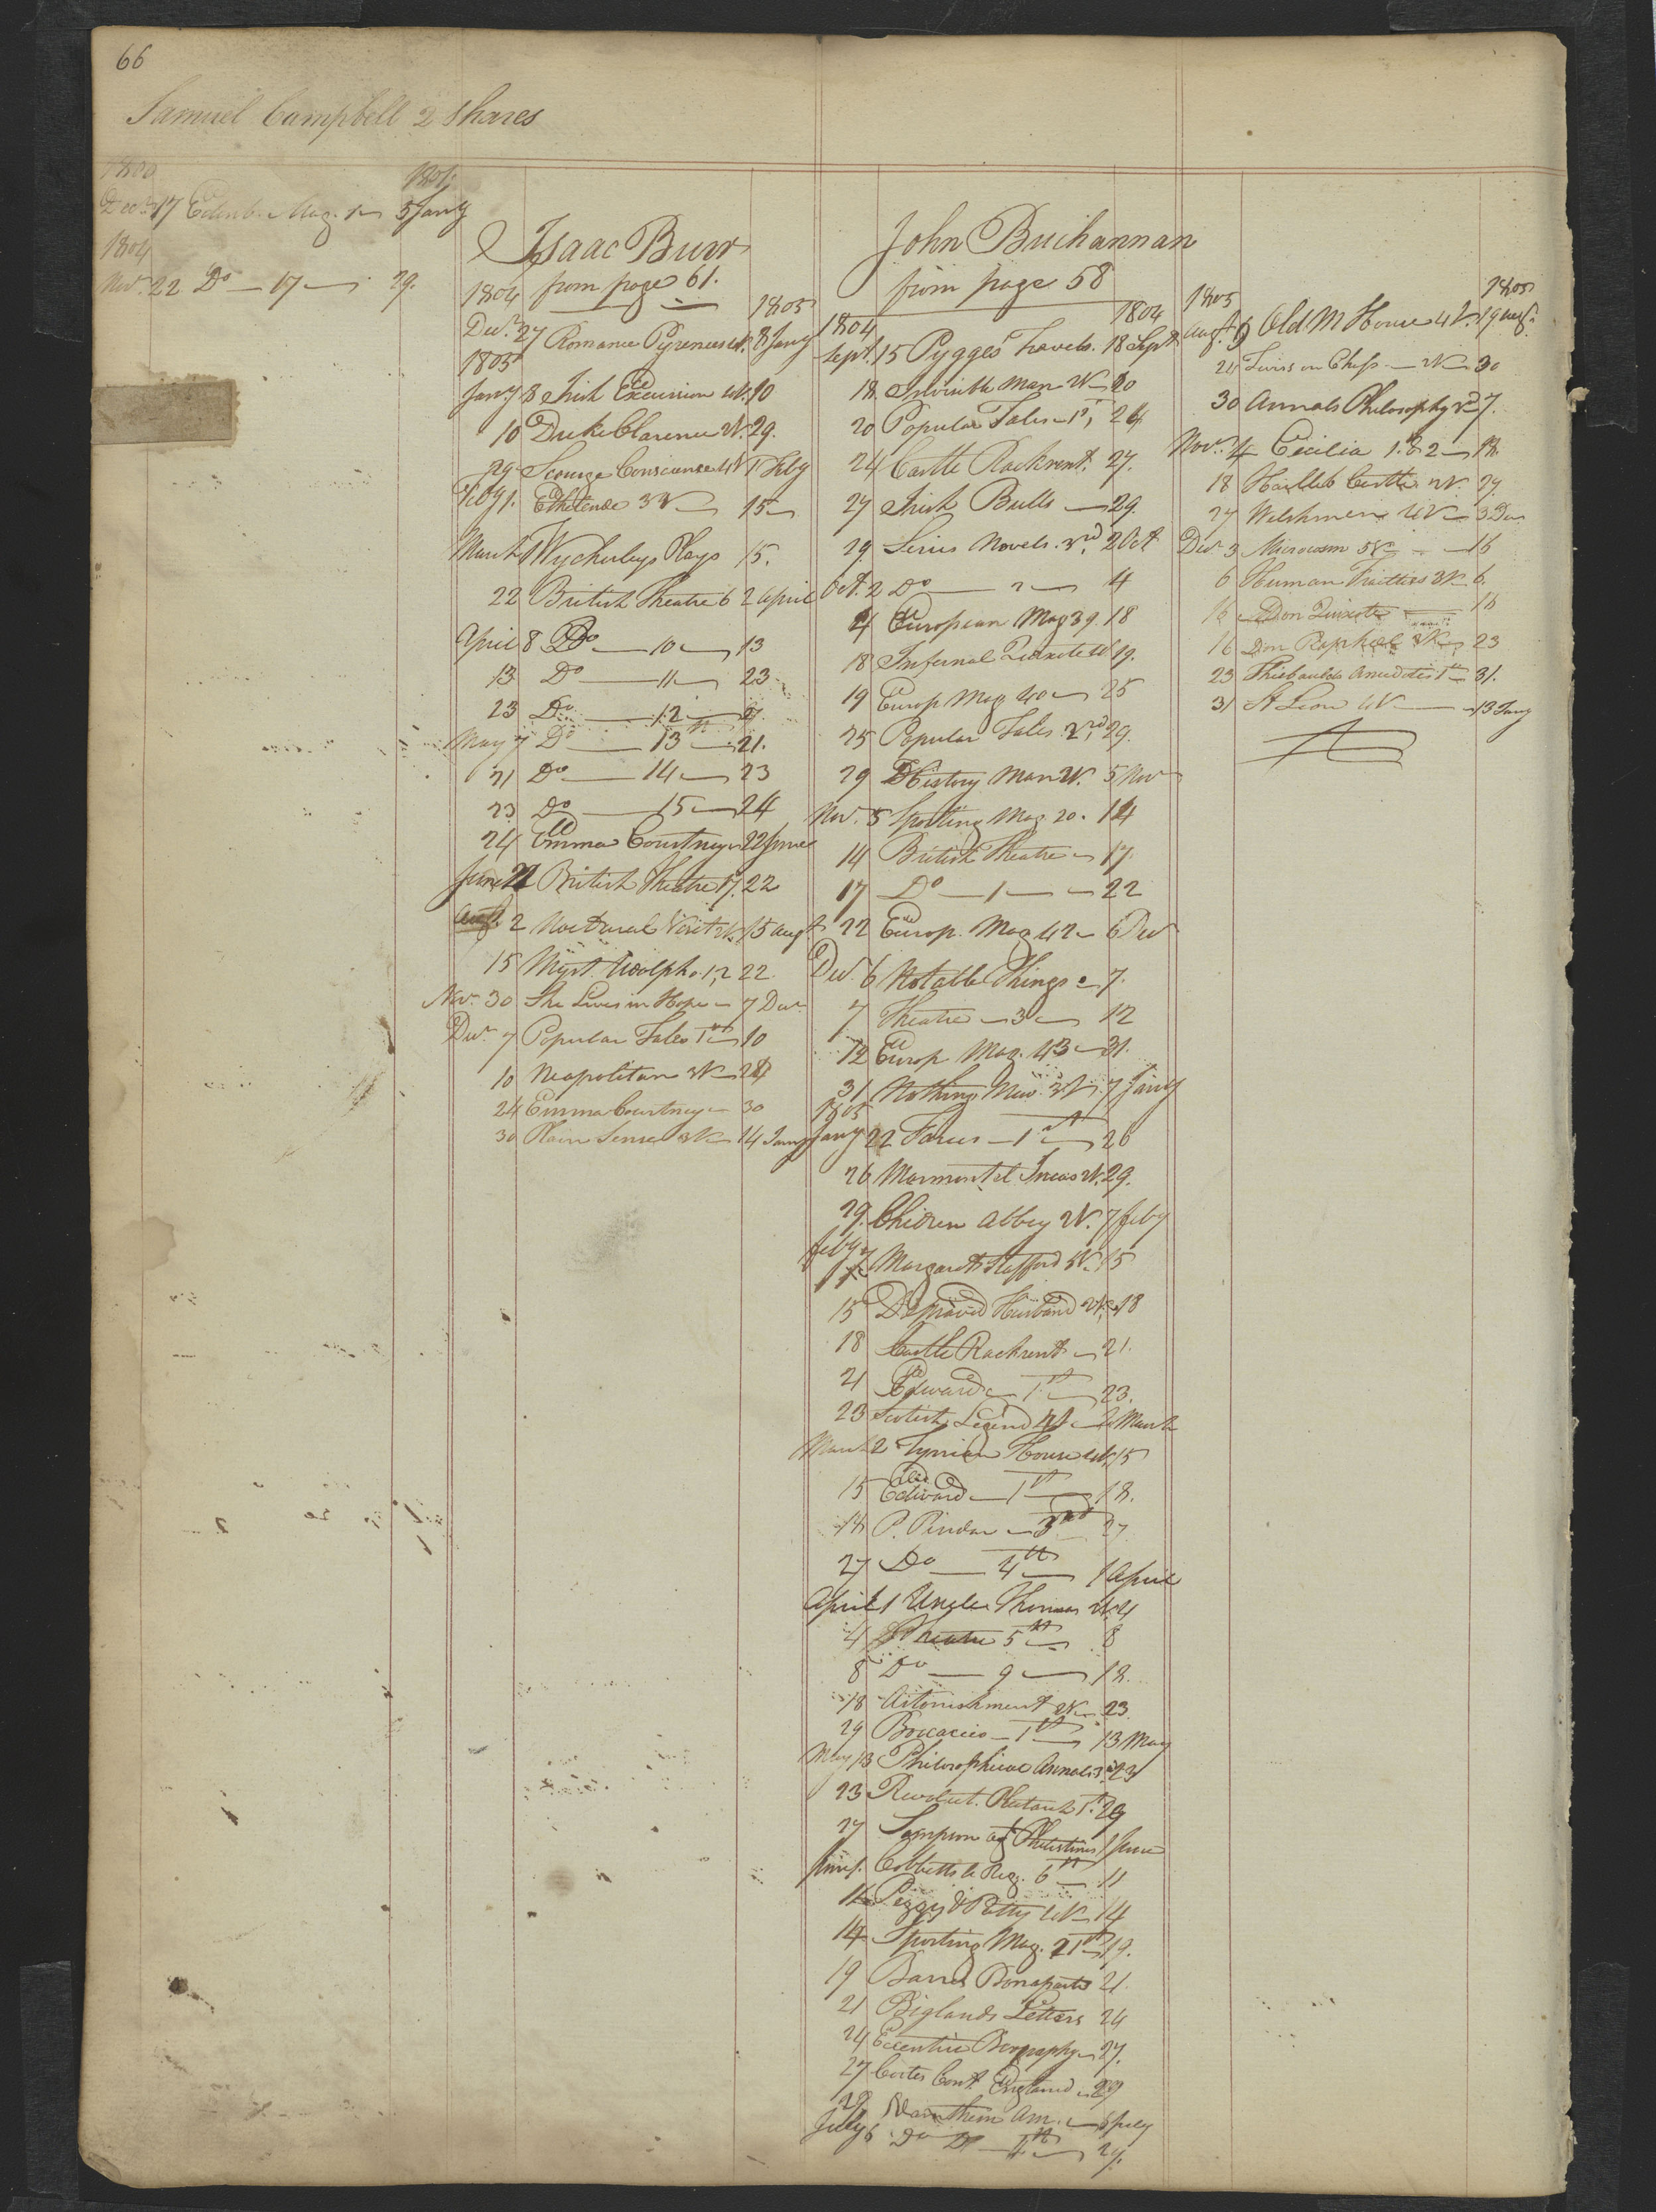 66
Samuel Campbell 2 Shares
1800 1801
Decr. 17 Edinb. Mag. 1 5 Jany
1804
Novr. 22 Do 17 29.
Isaac Burr
from page 61.
1804 1805
Decr. 27 Romance Pyrenees 4V. 8 Jany
1805
Jany 8 Irish Excursion 4V. 10
10 Duke Clarence 2V. 29.
29 Scourge Conscience 4V 1 Feby
Feby 1. Ethelende 3V 15
March 1 Wycherleys Plays 15.
22 British Theatre 6 2 April
April 8 Do 10 13
13 Do 11 23
23 Do 12 7
May 7 Do 13th 21.
21 Do 14 23
23 Do 15 24
24 Emma Courtney 22 June
June 22 British Theatre 17. 22
Augt. 2 Nocturnal Visit 2V. 15 Augt
15 Myst. Udolpho 1, 2 22
Novr. 30 She Lives in Hope 7 Decr
Decr. 7 Popular Tales 1st 10
10 Neapolitan 3V 24
24 Emma Courtney 30
30 Plain Sense 3V 14 Jany
John Buchannan
from page 58
1804 1804
Sept. 15 Pygges Travels. 18 Sept
18 Invisible Man 2V 20
20 Popular Tales 1st, 24
24 Castle Rackrent. 27.
27 Irish Bulls 29.
29 Series Novels. 3rd, 2 Oct
Oct. 2 Do 2 4
4 European Mag 39. 18
18 Infernal Quixote 4V 19.
19 Europ Mag 40 25
25 Popular Tales. 2nd, 29.
29 History Man 2V. 5 Nov
Nov. 5 Sporting Mag 20. 14
14 British Theatre 17.
17 Do 1 22
22 Europ. Mag 42 6 Decr
Decr 6 Notable Things 7.
7 Theatre 3 12
12 Europ Mag. 43 31.
31 Nothing New 3V. 7 Jany
1805
Jany 22 Farces 1st 26
26 Marmontel Incas 2V. 29.
29. Children Abbey 2V. 7 Feby
Feby 7 Margarets Stafford 5V. 15
15 Depraved Husband 2V. 18
18 Castle Rackrent 21.
21 Edward 1st 23.
23 Scotish Legend 4V 2 March
March 2 Tynian House 4V. 15
15 Edward 1st 18.
18 P. Pindar 3rd 27
27 Do 4th 1 April
April 1 Uncle Thomas 2V. 4
4 Theatre 5th 8
8 Do 9 18.
18 Astonishment 2V 23
29 Boccaccio 1st 13 May
May 13 Philosophical Annals 23
23 Revolut. Plutarch 1st 29
27 Sampson agt Philistines 1 June
June 1. Cobbetts Reg. 6th 11
11 Peggy & Patty 4V 14
14 Sporting Mag. 21st 19.
19 Barres Bonaparte 21.
21 Biglands Letters 24
24 Eccentric Biography 27.
27 Cortes Cont England 29
29 Northern Am. July
July 6 Do Do 4th 29.
1805 1805
Augt. 9 Old M House 4V. 19 Augt.
20 Twiss on Chess 2V 30
30 Annals Philosophy 2d 7.
Novr. 4 Cecilia 1. & 2 18.
18 2V. 27.
27 Welshmen 4V 3 Decr
Decr 3 Microcosm 5V 16
6 Human Frailties 3V 6.
16 Don Quixote 16
16 Don Raphael 3V 23
23 Thiebaulds Anecdotes 1st 31.
31 St Leon 4V 13 Jany